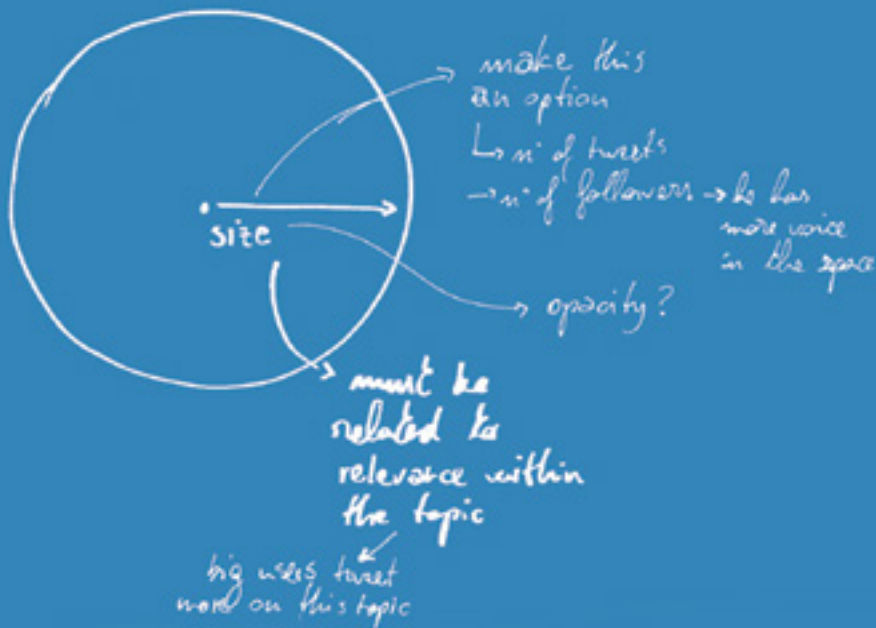 make this
an option
↳ n° of tweets
→ n° of followers → he has
more voice
in the space
size
→ opacity?
must be
related to
relevance within
the topic
big users tweet
more on this topic